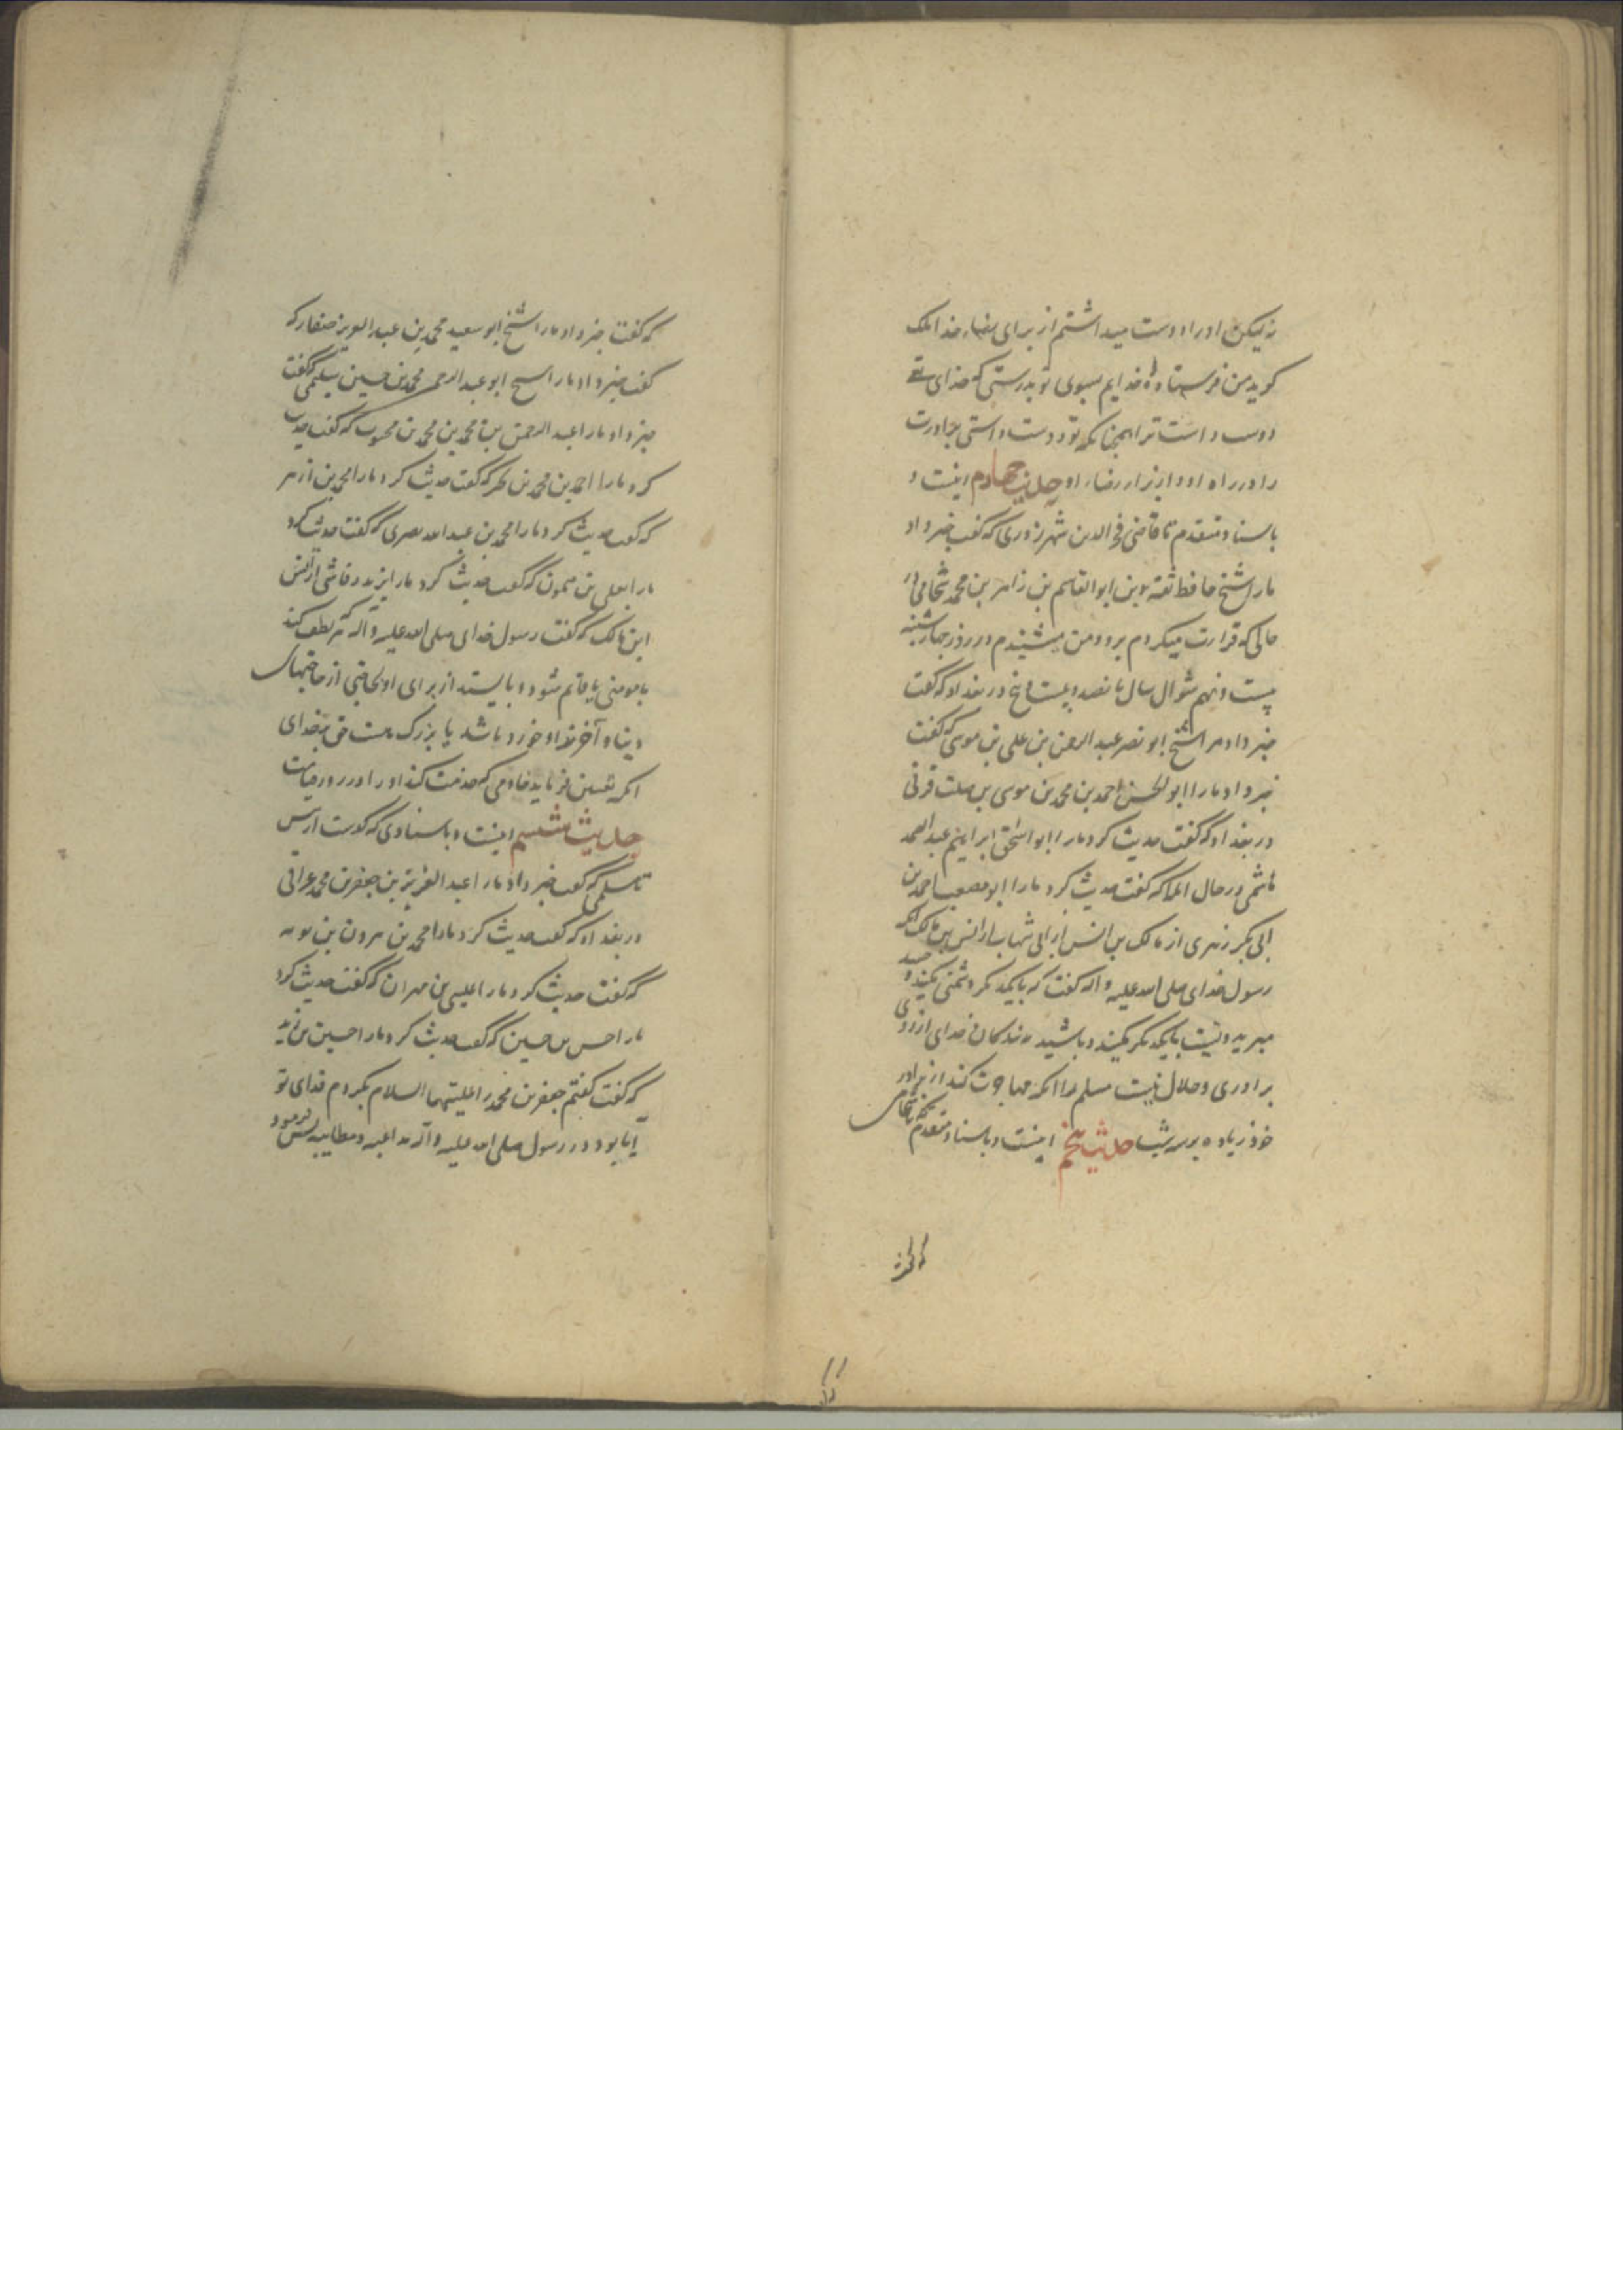 نه لیکن او را دوست میداشتم از برای رضاء خدا ملک
کوید من فرستاده خدایم بسوی تو بدرستی که خدای تع
دوست داشت ترا همچنانکه تو دوست داشتی برادرت
را در راه او و از برار رضاء او حدیث چهارم اینست و
باسناد متقدم تا قاضی فخر الدین شهرزوری که گفت خبر داد
مارا شیخ حافظ ثقه بن ابو القاسم بن زاهر بن محمد شحامی در
حالی که قرارت میکردم برو و من میشنیدم در روز چهارشنبه
بیست و نهم شوال سال پانصد و بیست و پنج در بغداد که گفت
خبر داد مرا شیخ ابو نصر عبد الرحمن بن علی بن موسی که گفت
خبر داد مارا ابو الحسن احمد بن محمد بن موسی بن صلت قرنی
در بغداد که گفت حدیث کرد مارا ابو اسحق ابراهیم عبد الصمد
هاشمی در حال املا که گفت حدیث کرد مارا ابو مصعب احمد بن
ابی بکر زهری از مالک بن انس از ابی شهاب از انس بن مالک انکه
رسول خدای صلی الله علیه و آله گفت که بایکدیکر دشمنی مکنید و حسد
مبرید و پشت بایکدیکر مکنید و باشید بندکان خدای از روی
برادری و حلال نیست مسلم را انکه مهاجرت کند از برادر
خود زیاده بر سه شب حدیث پنجم اینست و باسناد متقدم تا شحامی
که گفت خبر داد مارا شیخ ابو سعید محمد بن عبد العزیز صفار که
گفت خبر داد مارا شیخ ابو عبد الرحمن محمد بن حسین سلمی که گفت
خبر داد مارا عبد الرحمن بن محمد بن محمد بن محبوب که گفت حدیث
کرد مارا احمد بن محمد بن که گفت حدیث کرد مارا محمد بن ازهر
که گفت حدیث کرد مارا محمد بن عبد الله بصری که گفت حدیث کرد
مارا یعلی بن میمون که گفت حدیث کرد مارا یزید رقاشی از انس
ابن مالک که گفت رسول خدای صلی الله علیه و آله که هر که لطف کند
با مومنی یا قائم شود و بایستد از برای او بحاجتی از حاجتهای
دنیا و آخرت او خورد باشد یا بزرگ هست حق بر خدای
انکه تعیین فرماید خادمی که خدمت کند او را در روز قیامت
حدیث ششم اینست و باسنادی که گذشت از پیش
تا سلمی که گفت خبر داد مارا عبد العزیز بن جعفر بن محمد عراقی
در بغداد که گفت حدیث کرد مارا محمد بن هرون بن
که گفت حدیث کرد مارا عیسی بن مهران که گفت حدیث کرد
مارا حسن بن حسین که گفت حدیث کرد مارا حسین بن زید
که گفت گفتم جعفر بن محمد را علیهما السلام بکردم فدای تو
آیا بود در رسول صلی الله علیه و آله مداعبه و مطایبه پس فرمود